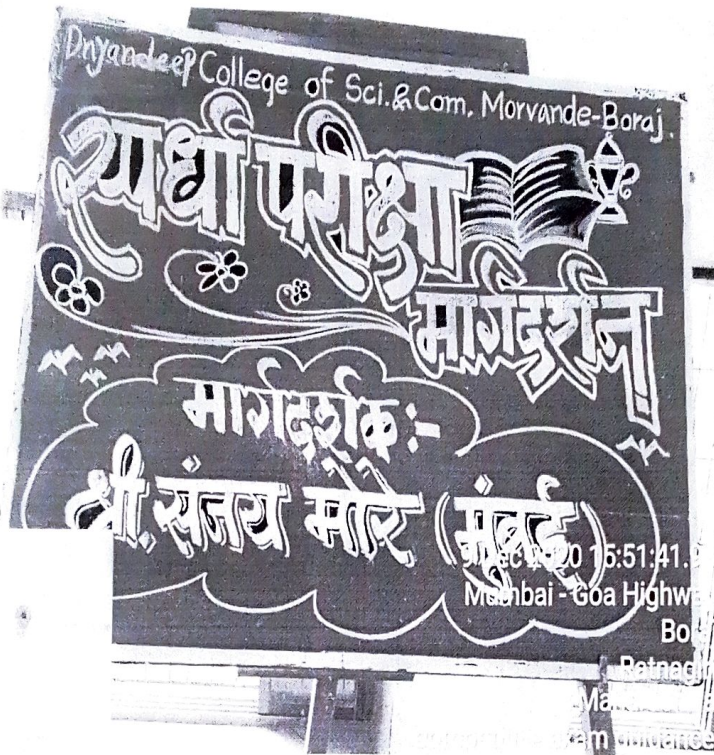 Dnyandeep College of Sci.&Com. Morvande-Boraj.
स्पर्धा परीक्षा
मार्गदर्शन
मार्गदर्शक :-
श्री. संजय मोरे (मुंबई)
15:51:41.
Mumbai - Goa Highw
Bo
Ratnag
exam guidance